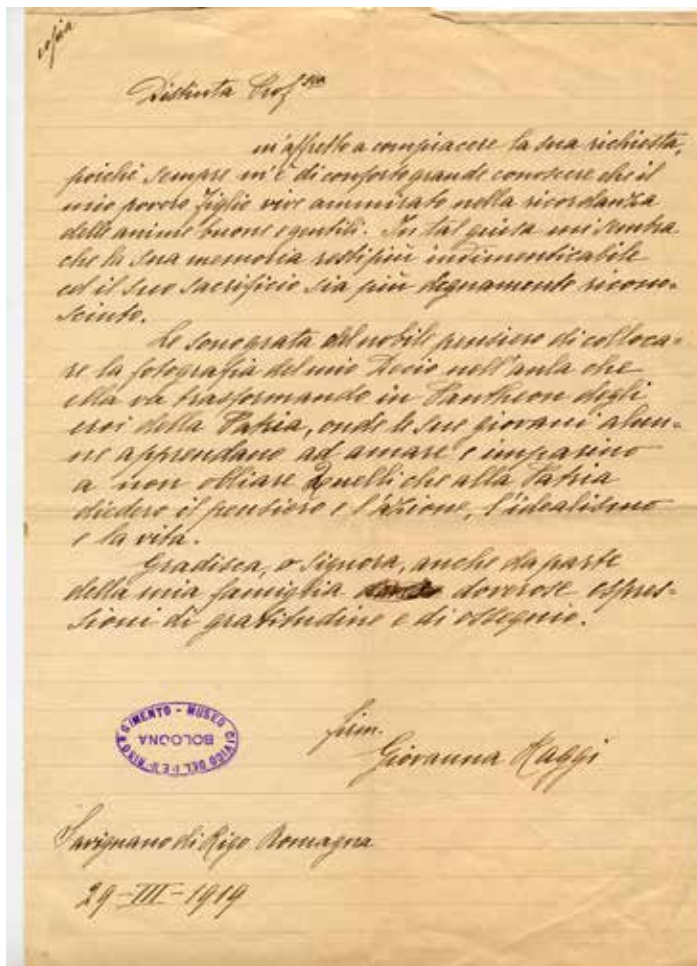 copia
Distinta Prof ssa
m'affretto a compiacere la sua richiesta,
poichè sempre m'è di conforto grande conoscere che il
mio povero figlio vive ammirato nella ricordanza
delle anime buone e gentili. In tal guisa mi sembra
che la sua memoria resti più indimenticabile
ed il suo sacrificio sia più degnamente ricono-
sciuto.
Le sono grata del nobile pensiero di colloca-
re la fotografia del mio Decio nell'aula che
ella va trasformando in Pantheon degli
eroi della Patria, onde le sue giovani alun-
ne apprendano ad amare e imparino
a non obliare Quelli che alla Patria
diedero il pensiero e l'azione, l'idealismo
e la vita.
Gradisca, o Signora, anche da parte
della mia famiglia doverose espres-
sioni di gratitudine e di ossequio.
firm.
Giovanna Raggi
MUSEO CIVICO DEL 1° E 2° RISORGIMENTO -
BOLOGNA
Savignano di Rigo Romagna
29-III-1919